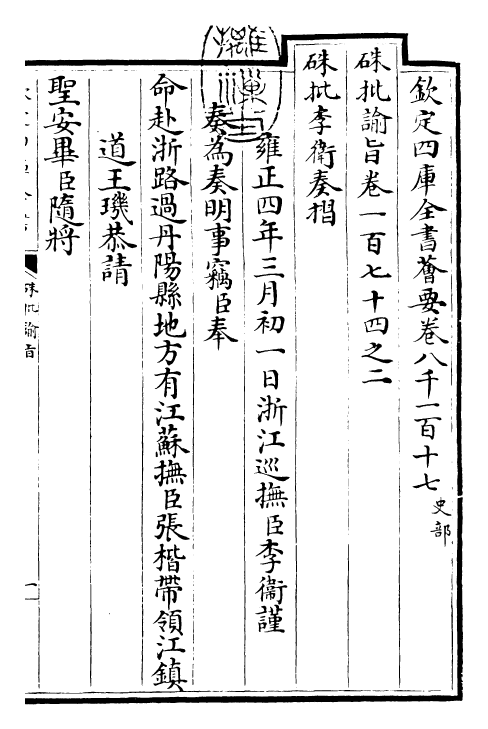 欽定四庫全書薈要卷八千一百十七 史部
硃批諭旨卷一百七十四之二
硃批李衛奏摺
雍正四年三月初一日浙江巡撫臣李衛謹
奏為奏明事竊臣奉
命赴浙路過丹陽縣地方有江蘇撫臣張楷帶領江鎮
道王璣恭請
聖安畢臣隨將
硃批諭旨